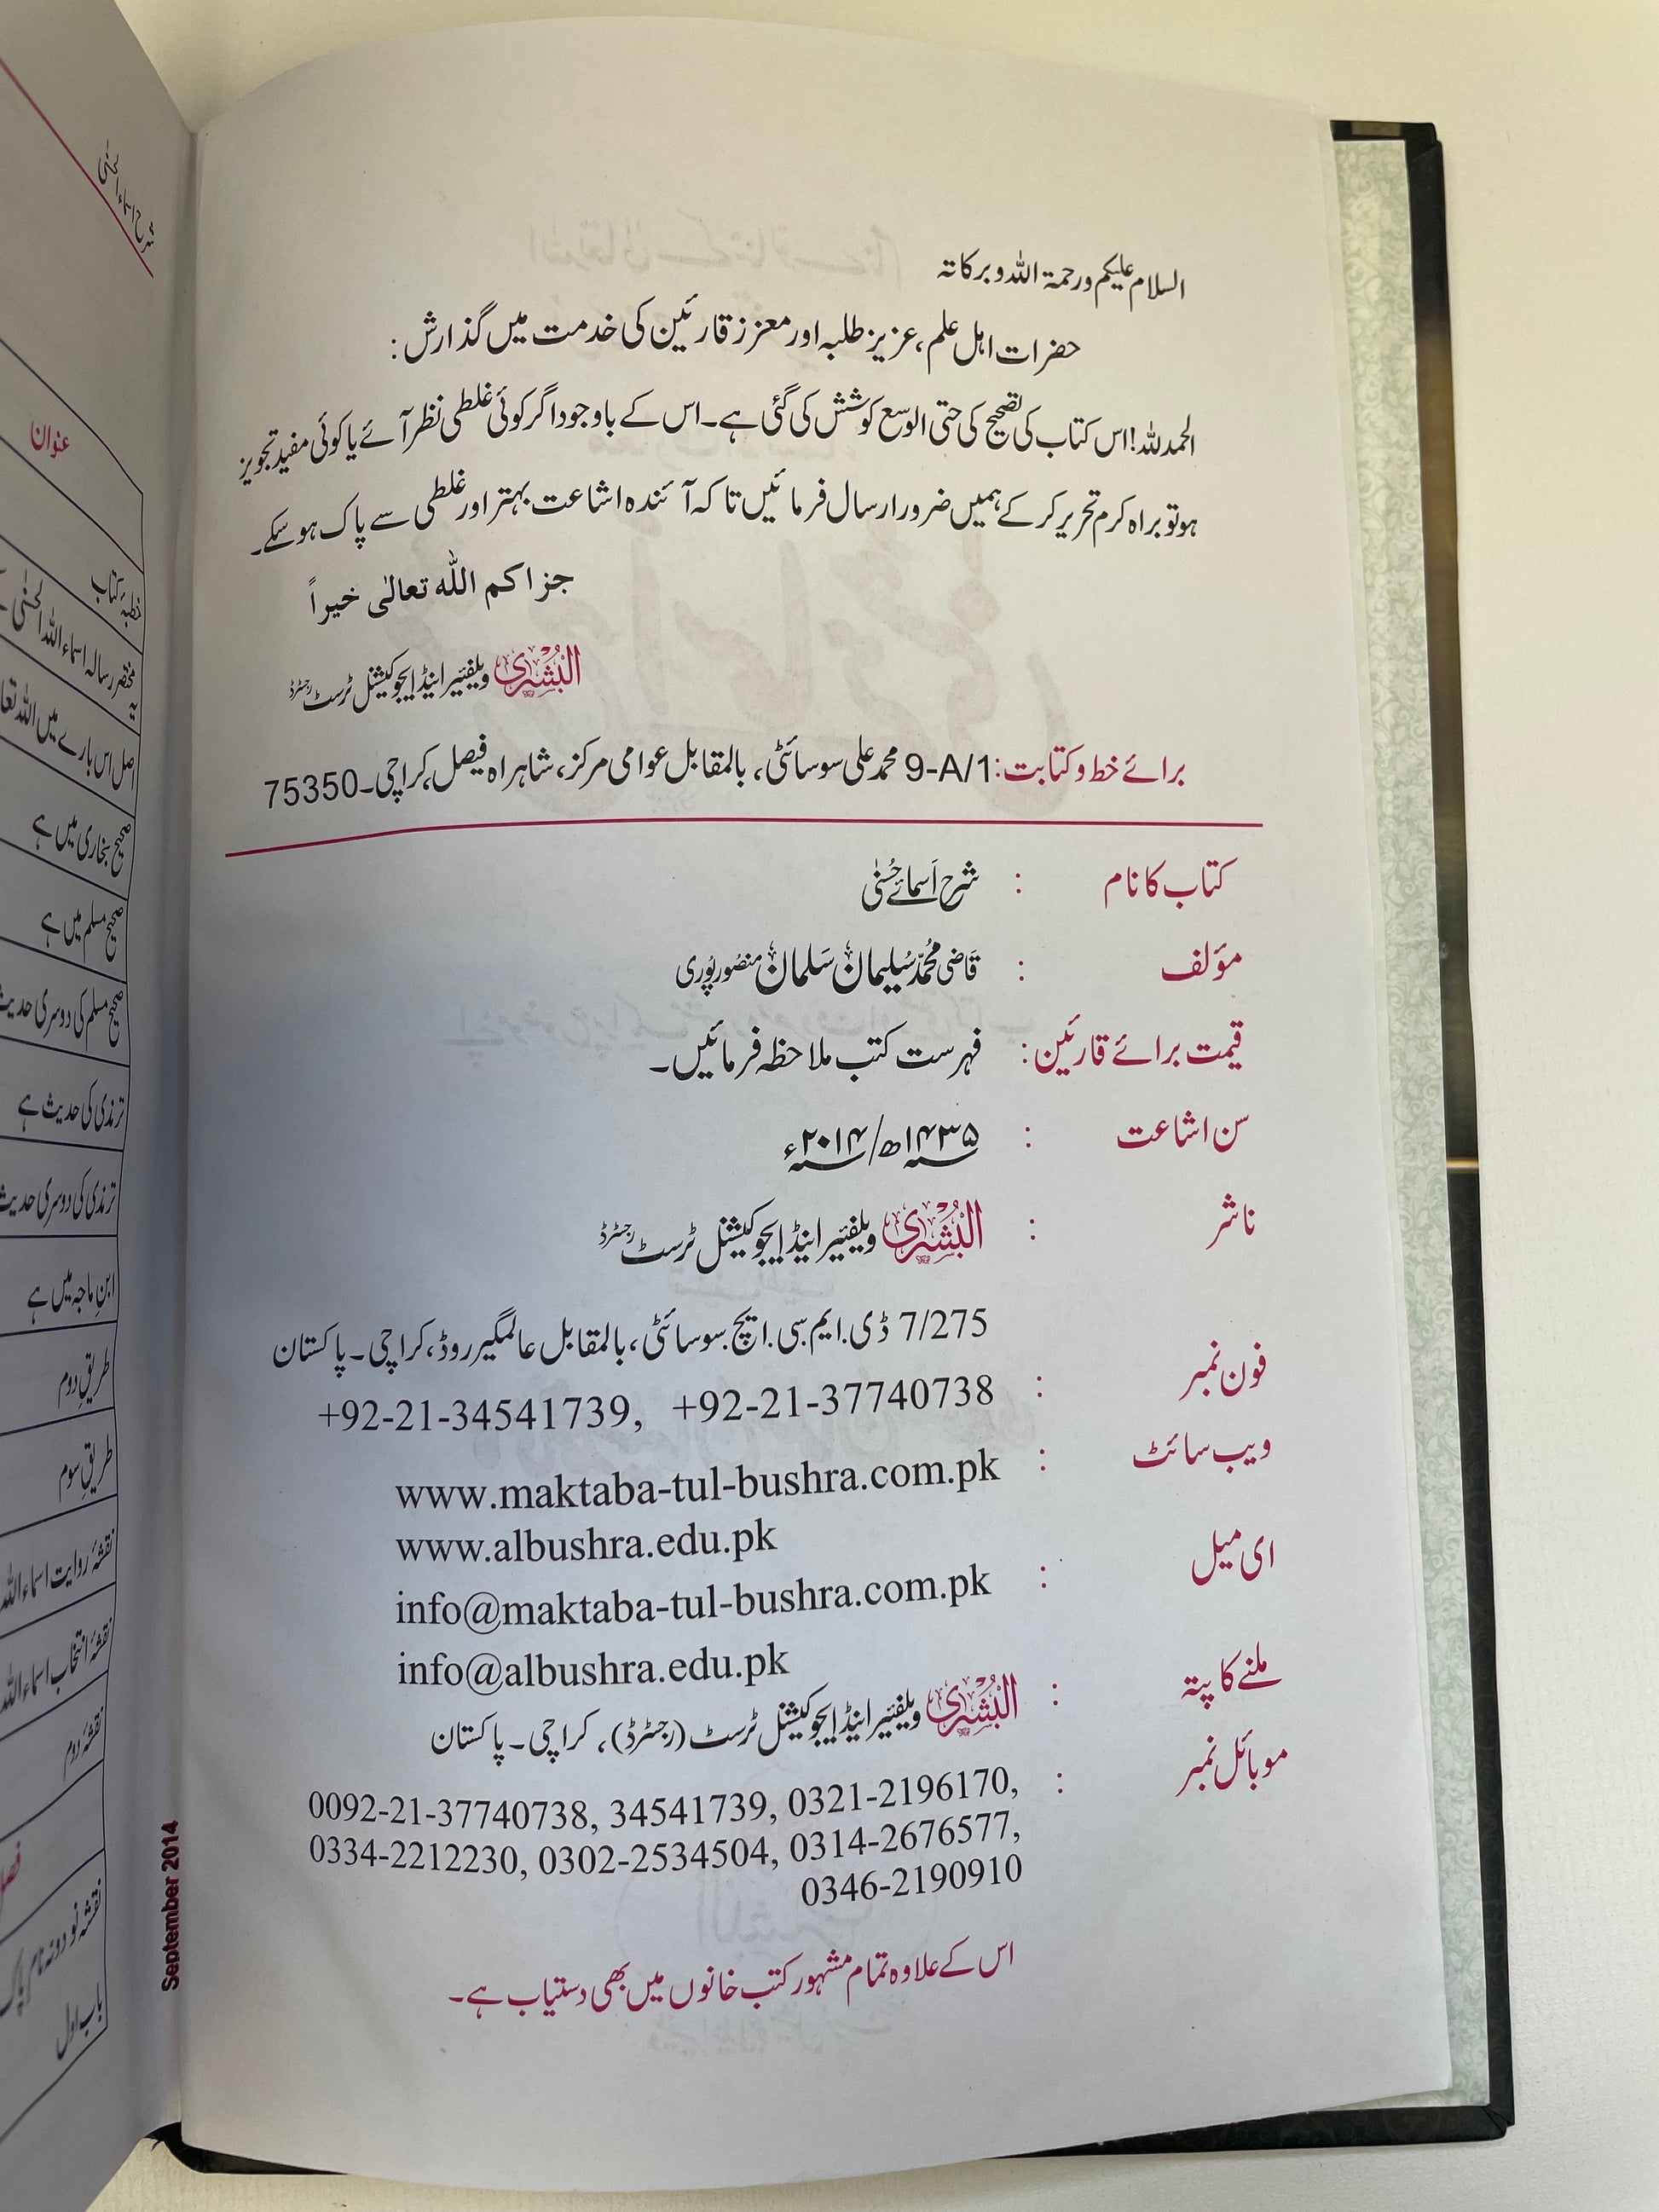 السلام علیکم ورحمۃ اللہ وبرکاتہ
حضرات اہل علم، عزیز طلبہ اور معزز قارئین کی خدمت میں گذارش:
الحمدللہ! اس کتاب کی تصحیح کی حتی الوسع کوشش کی گئی ہے۔ اس کے باوجود اگر کوئی غلطی نظر آئے یا کوئی مفید تجویز
ہو تو براہ کرم تحریر کر کے ہمیں ضرور ارسال فرمائیں تا کہ آئندہ اشاعت بہتر اور غلطی سے پاک ہو سکے۔
جزاکم اللہ تعالٰی خیراً
البُشریٰ ویلفئیر اینڈ ایجوکیشنل ٹرسٹ رجسٹرڈ
برائے خط وکتابت: 9-A/1 محمد علی سوسائٹی، بالمقابل عوامی مرکز، شاہراہ فیصل، کراچی۔ 75350
کتاب کا نام : شرح اَسمائے حُسنٰی
مؤلف : قاضی محمّد سُلیمان سَلمان منصُور پُوری
قیمت برائے قارئین: فہرست کتب ملاحظہ فرمائیں۔
سن اشاعت : ۱۴۳۵ھ/ ۲۰۱۴ء
ناشر : البُشریٰ ویلفئیر اینڈ ایجوکیشنل ٹرسٹ رجسٹرڈ
7/275 ڈی.ایم.سی.ایچ.سوسائٹی، بالمقابل عالمگیر روڈ، کراچی۔ پاکستان
فون نمبر : +92-21-34541739, +92-21-37740738
ویب سائٹ : www.maktaba-tul-bushra.com.pk
www.albushra.edu.pk
ای میل : info@maktaba-tul-bushra.com.pk
info@albushra.edu.pk
ملنے کا پتہ : البُشریٰ ویلفئیر اینڈ ایجوکیشنل ٹرسٹ (رجسٹرڈ)، کراچی۔ پاکستان
موبائل نمبر : 0092-21-37740738, 34541739, 0321-2196170,
0334-2212230, 0302-2534504, 0314-2676577,
0346-2190910
اس کے علاوہ تمام مشہور کتب خانوں میں بھی دستیاب ہے۔
September 2014
شرح اسماء الحسنٰی
عنوان
خطبۂ کتاب
مختصر رسالہ اسماء اللہ الحسنٰی
اصل اس بارے میں اللہ تعا
صحیح بخاری میں ہے
صحیح مسلم میں ہے
صحیح مسلم کی دوسری حدیث
ترمذی کی حدیث ہے
ترمذی کی دوسری حدیث
ابنِ ماجہ میں ہے
طریقِ دوم
طریقِ سوم
نقشۂ روایت اسماء اللہ
نقشۂ انتخاب اسماء اللہ
نقشۂ دوم
فصل
نقشہ نو دو نہ نام پاک
باب اول